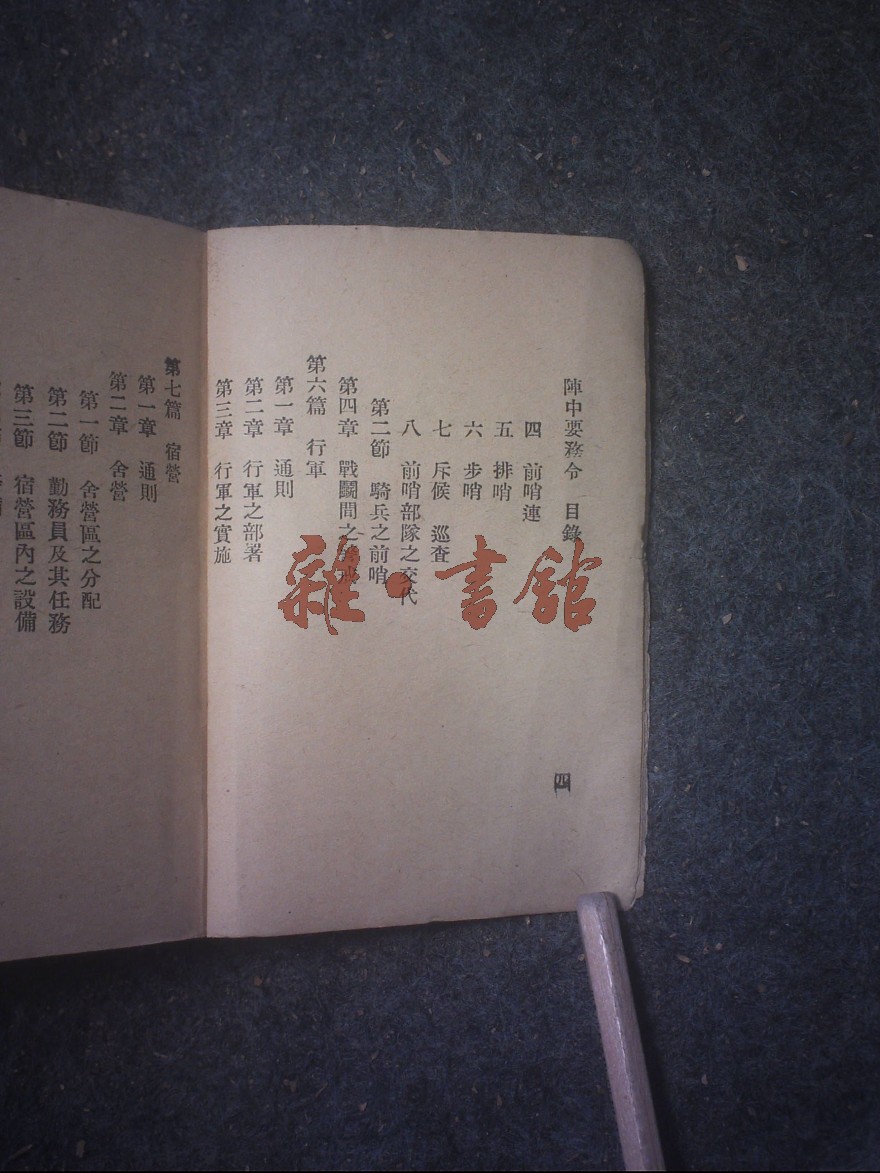 陣中要務令 目錄
四 前哨連
五 排哨
六 步哨
七 斥候 巡查
八 前哨部隊之交代
第二節 騎兵之前哨
第四章 戰鬭間之
第六篇 行軍
第一章 通則
第二章 行軍之部署
第三章 行軍之實施
四
第七篇 宿營
第一章 通則
第二章 舍營
第一節 舍營區之分配
第二節 勤務員及其任務
第三節 宿營區內之設備
雜·書館